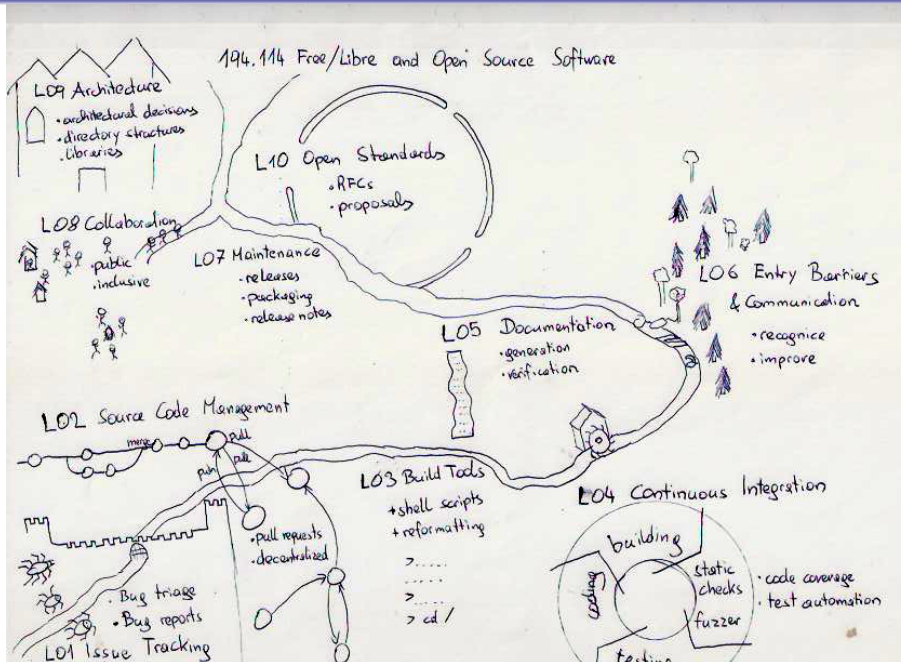 194.114 Free/Libre and Open Source Software
L09 Architecture
• architectural decisions
• directory structures
• libraries
L10 Open Standards
• RFCs
• proposals
L08 Collaboration
• public
• inclusive
L07 Maintenance
• releases
• packaging
• release notes
L06 Entry Barriers
& Communication
• recognice
• improve
L05 Documentation
• generation
• verification
L02 Source Code Management
merge
pull
pull
push
• pull requests
• decentralized
L03 Build Tools
+ shell scripts
+ reformatting
>.....
.....
>.....
> cd /
L04 Continuous Integration
building
static
checks
fuzzer
testing
coding
• code coverage
• test automation
• Bug triage
• Bug reports
L01 Issue Tracking